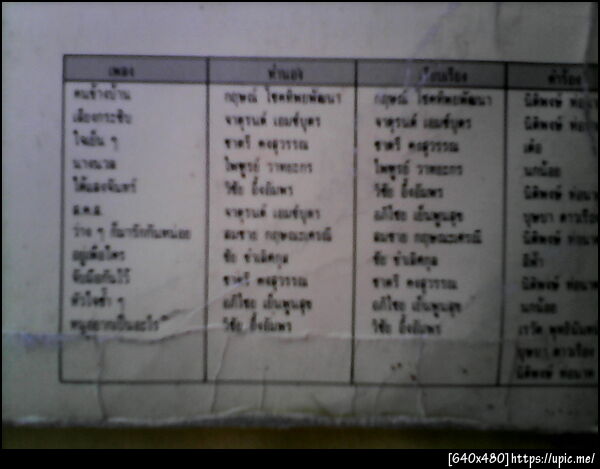 เพลง ทำนอง เรียบเรียง คำร้อง
คนข้างบ้าน กฤษณ์ โชคทิพย์พัฒนา กฤษณ์ โชคทิพย์พัฒนา นิติพงษ์ ห่อนาค
เสียงกระซิบ จาตุรนต์ เอมซ์บุตร จาตุรนต์ เอมซ์บุตร นิติพงษ์ ห่อนาค
ใจเย็น ๆ ชาตรี คงสุวรรณ ชาตรี คงสุวรรณ เต๋อ
นางนวล ไพฑูรย์ วาทยะกร ไพฑูรย์ วาทยะกร นกน้อย
ใต้แสงจันทร์ วิชัย อึ้งอัมพร วิชัย อึ้งอัมพร นิติพงษ์ ห่อนาค
ส.ค.ส. จาตุรนต์ เอมซ์บุตร อภิไชย เย็นพูนสุข บุษบา ดาวเรือง
ว่าง ๆ ก็มารักกันหน่อย สมชาย กฤษณะเศรณี สมชาย กฤษณะเศรณี นิติพงษ์ ห่อนาค
อยู่เพื่อใคร ชัย ชำเลิศกุล
จับมือกันไว้ ชาตรี คงสุวรรณ ชาตรี คงสุวรรณ นิติพงษ์ ห่อนาค
หัวใจช้ำ ๆ อภิไชย เย็นพูนสุข อภิไชย เย็นพูนสุข นกน้อย
หนูอยากเป็นอะไร วิชัย อึ้งอัมพร วิชัย อึ้งอัมพร
บุษบา ดาวเรือง
นิติพงษ์ ห่อนาค
[640x480]https://upic.me/